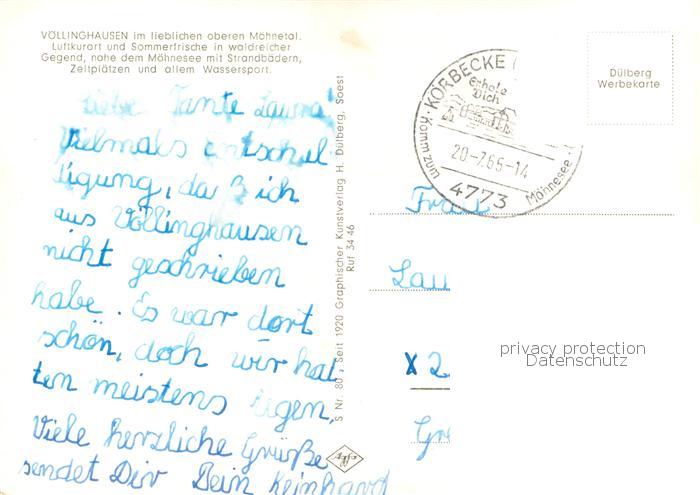 VÖLLINGHAUSEN im lieblichen oberen Möhnetal.
Luftkurort und Sommerfrische in waldreicher
Gegend, nahe dem Möhnesee mit Strandbädern,
Zeltplätzen und allem Wassersport.
Liebe Tante Laura!
Vielmals entschul
digung, daß ich
aus Völlinghausen
nicht geschrieben
habe. Es war dort
schön, doch wir hat-
ten meistens egen,
Viele herzliche Grüße
sendet Dir Dein Reinhard
S Nr. 80 Seit 1920 Graphischer Kunstverlag H. Dülberg, Soest
Ruf 34 46
KÖRBECKE (
Erhole
Dich
20-7.65-14
Komm zum
4773
Möhnesee
Dülberg
Werbekarte
Frau
Lau
X 2
privacy protection
Datenschutz
Gr